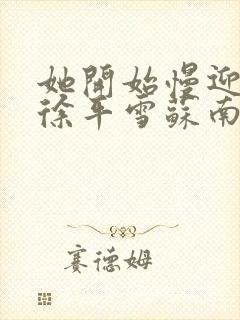 她開始慢迎
徐平雪蘇南
賽德姆